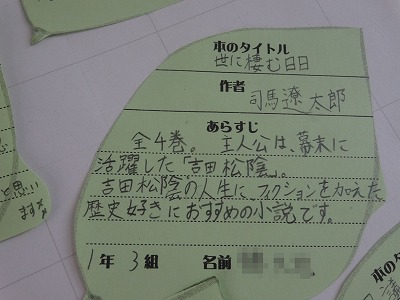 本のタイトル
世に棲む日日
作者
司馬遼太郎
あらすじ
全4巻。主人公は、幕末に
活躍した「吉田松陰」。
吉田松陰の人生に、フィクションを加えた、
歴史好きにおすすめの小説です。
1年 3組 名前
と思い
ます
本のタ